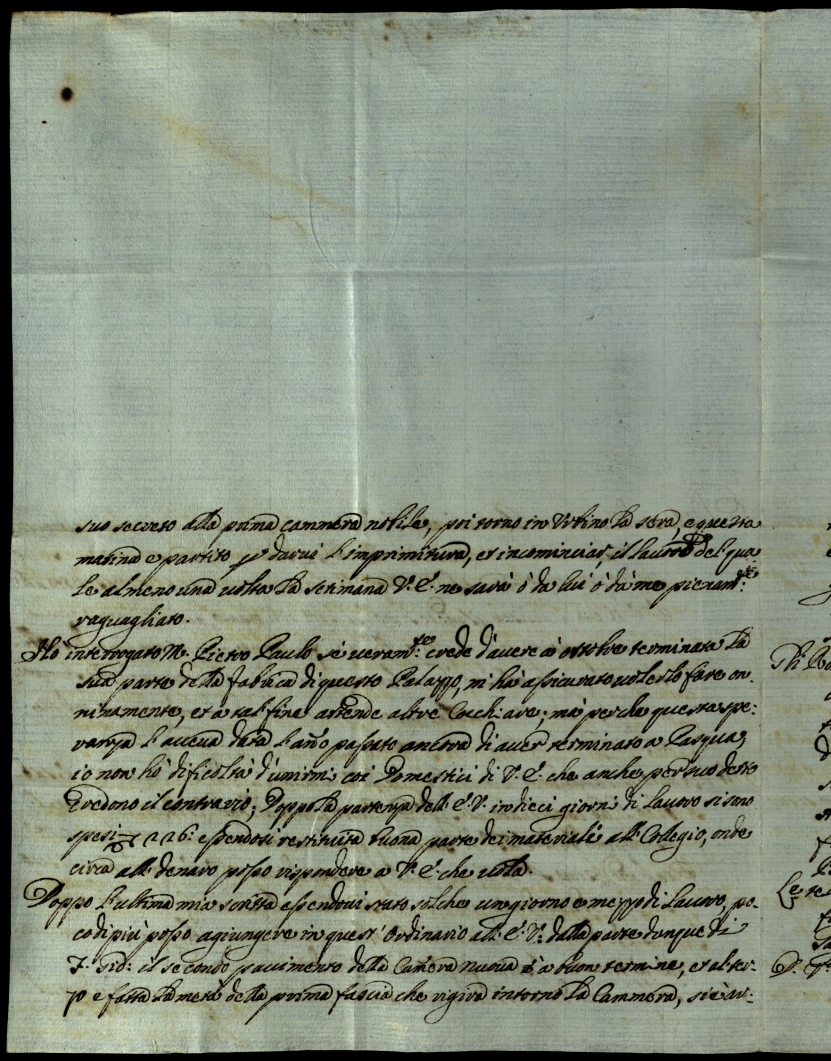 suo secreto alla prima cammera nobile, poi torno in Urbino la sera, e questa
matina e partito p darui l'imprimitura, et incominciar il lauoro del qua
le almeno una uolta la setimana V. E. ne sarà ò da lui ò da me pienam.te
raguagliato.
Hò interrogato M. Pietro Paulo se ueram.te crede d'auere a ottobre terminata la
sua parte della fabrica di questo Palazzo, m'hà assicurato uolerlo fare on-
ninamente, et a tal fine attende altre Carchiare; mà perche questa spe:
ranza l'aueua data l'año passato ancora di auer terminato a Pasqua,
io non hò dificoltà d'unirmi coi Domestici di V. E. che anche per suo detto
credono il contrario; Doppo la partenza dell'E. V. in dieci giorni di lauoro si sono
spesi 226: essendosi restituita buona parte dei materiali all Collegio, onde
circa all denaro posso rispondere a V. E. che uola.
Doppo l'ultima mia scritta essendoui stato solche un giorno e mezzo di lauoro, po-
co di più posso agiungere in quest'Ordinario all'E. V. dalla parte dunque di
il secondo pauimento della Camera nuoua è a buon termine, et al ter-
zo e fatta la metà della prima fascia che rigira intorno la Cammera, si è ar-